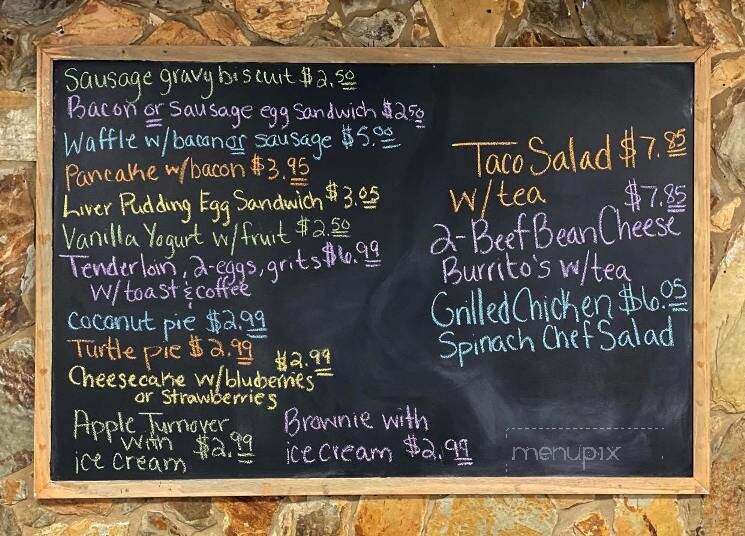 Sausage gravy biscuit $2.50
Bacon or Sausage egg Sandwich $2.50
Waffle w/bacon or sausage $5.00
Pancake w/bacon $3.95
Liver Pudding Egg Sandwich $3.05
Vanilla Yogurt w/fruit $2.50
Tenderloin, 2-eggs, grits $6.99
w/toast & coffee
coconut pie $2.99
Turtle pie $2.99
$2.99
Cheesecake w/bluberries
or Strawberries
Apple Turnover
with $2.99
ice cream
Brownie with
ice cream $2.99
Taco Salad $7.85
w/tea
$7.85
2-Beef Bean Cheese
Burrito's w/tea
Grilled Chicken $6.05
Spinach Chef Salad
menupix